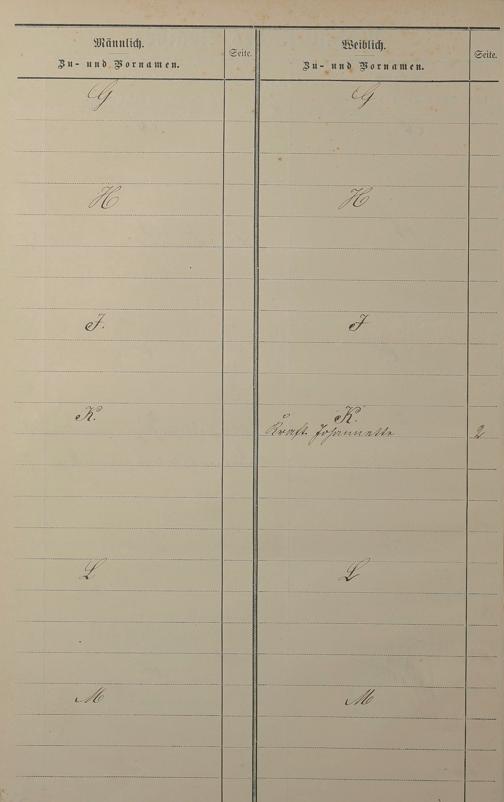 Männlich.
Zu- und Vornamen.
Seite.
Weiblich.
Zu- und Vornamen.
Seite.
G
G
H
H
J.
J
K.
K.
Kraft Johannette 2
L
L
M
M